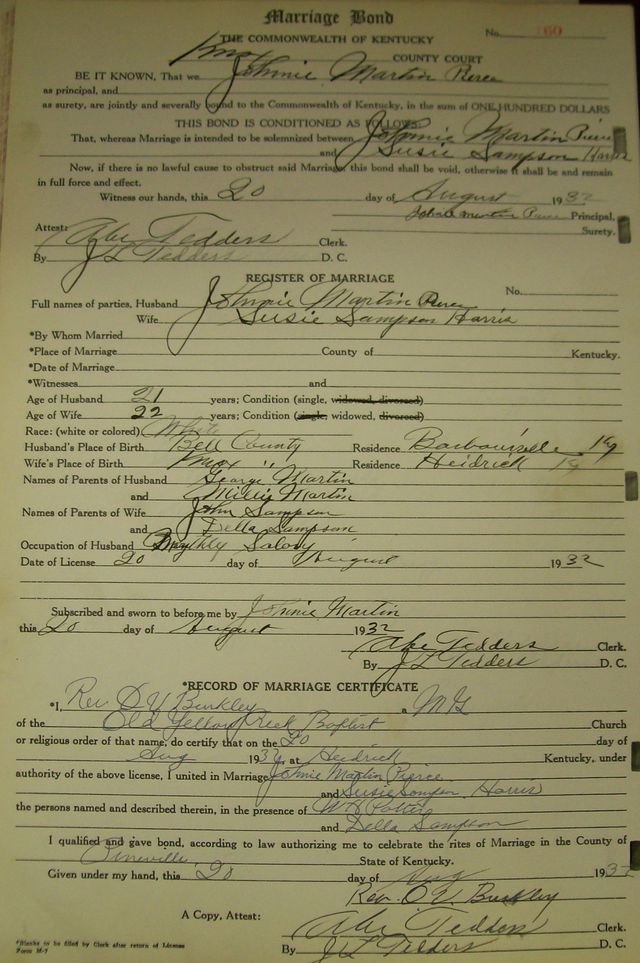 Marriage Bond
No. 160
THE COMMONWEALTH OF KENTUCKY
Knox COUNTY COURT
BE IT KNOWN, That we Johnnie Martin Pierce
as principal, and
as surety, are jointly and severally bound to the Commonwealth of Kentucky, in the sum of ONE HUNDRED DOLLARS
THIS BOND IS CONDITIONED AS FOLLOWS
That, whereas Marriage is intended to be solemnized between Johnnie Martin Pierce
and Susie Sampson Harris
Now, if there is no lawful cause to obstruct said Marriage, this bond shall be void, otherwise it shall be and remain
in full force and effect.
Witness our hands, this 20 day of August 1932
Martin Pierce Principal,
Surety.
Attest:
Abe Tedders Clerk.
By J L Tedders D. C.
REGISTER OF MARRIAGE
No.
Full names of parties, Husband Johnnie Martin Pierce
Wife Susie Sampson Harris
*By Whom Married
*Place of Marriage County of Kentucky.
*Date of Marriage
*Witnesses and
Age of Husband 21 years; Condition (single, widowed, divorced)
Age of Wife 22 years; Condition (single, widowed, divorced)
Race: (white or colored) White
Husband's Place of Birth Bell County Residence Barbourville Ky
Wife's Place of Birth Knox " Residence Heidrick Ky
Names of Parents of Husband George Martin
and Millie Martin
Names of Parents of Wife John Sampson
and Della Sampson
Occupation of Husband
Date of License 20 day of August 1932
Subscribed and sworn to before me by Johnnie Martin
this 20 day of August 1932
Abe Tedders Clerk.
By J L Tedders D. C.
*RECORD OF MARRIAGE CERTIFICATE
*I, Rev. O V Burkley a M G
of the Old Yellow Creek Baptist Church
or religious order of that name, do certify that on the 20 day of
Aug 1932, at Heidrick Kentucky, under
authority of the above license, I united in Marriage Johnie Martin Pierce
and Susie Sampson Harris
the persons named and described therein, in the presence of Potter
and Della Sampson
I qualified and gave bond, according to law authorizing me to celebrate the rites of Marriage in the County of
Pineville State of Kentucky.
Given under my hand, this 20 day of Aug 1932
Rev. O V Burkley
A Copy, Attest: Abe Tedders Clerk.
By J L Tedders D. C.
*Blanks to be filled by Clerk after return of License
Form M-7